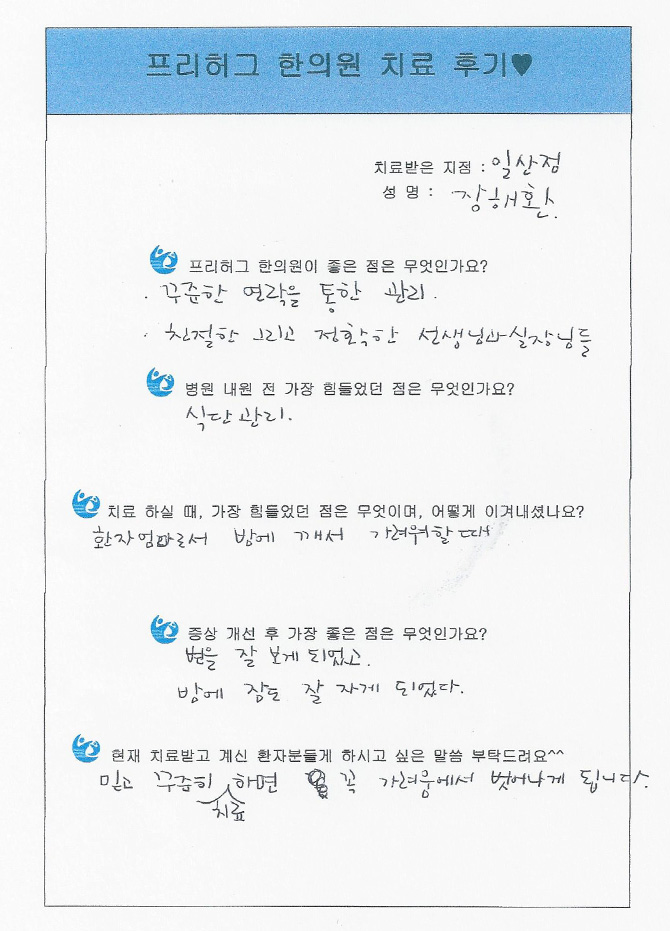 프리허그 한의원 치료 후기♥
치료받은 지점 : 일산점
성 명 : 장해환.
프리허그 한의원이 좋은 점은 무엇인가요?
· 꾸준한 연락을 통한 관리.
· 친절한 그리고 정확한 선생님과 실장님들
병원 내원 전 가장 힘들었던 점은 무엇인가요?
식단관리.
치료 하실 때, 가장 힘들었던 점은 무엇이며, 어떻게 이겨내셨나요?
환자엄마로서 밤에 깨서 가려워할 때
증상 개선 후 가장 좋은 점은 무엇인가요?
변을 잘 보게 되었고.
밤에 잠도 잘 자게 되었다.
현재 치료받고 계신 환자분들게 하시고 싶은 말씀 부탁드려요^^
믿고 꾸준히 치료 하면 꼭 가려움에서 벗어나게 됩니다.